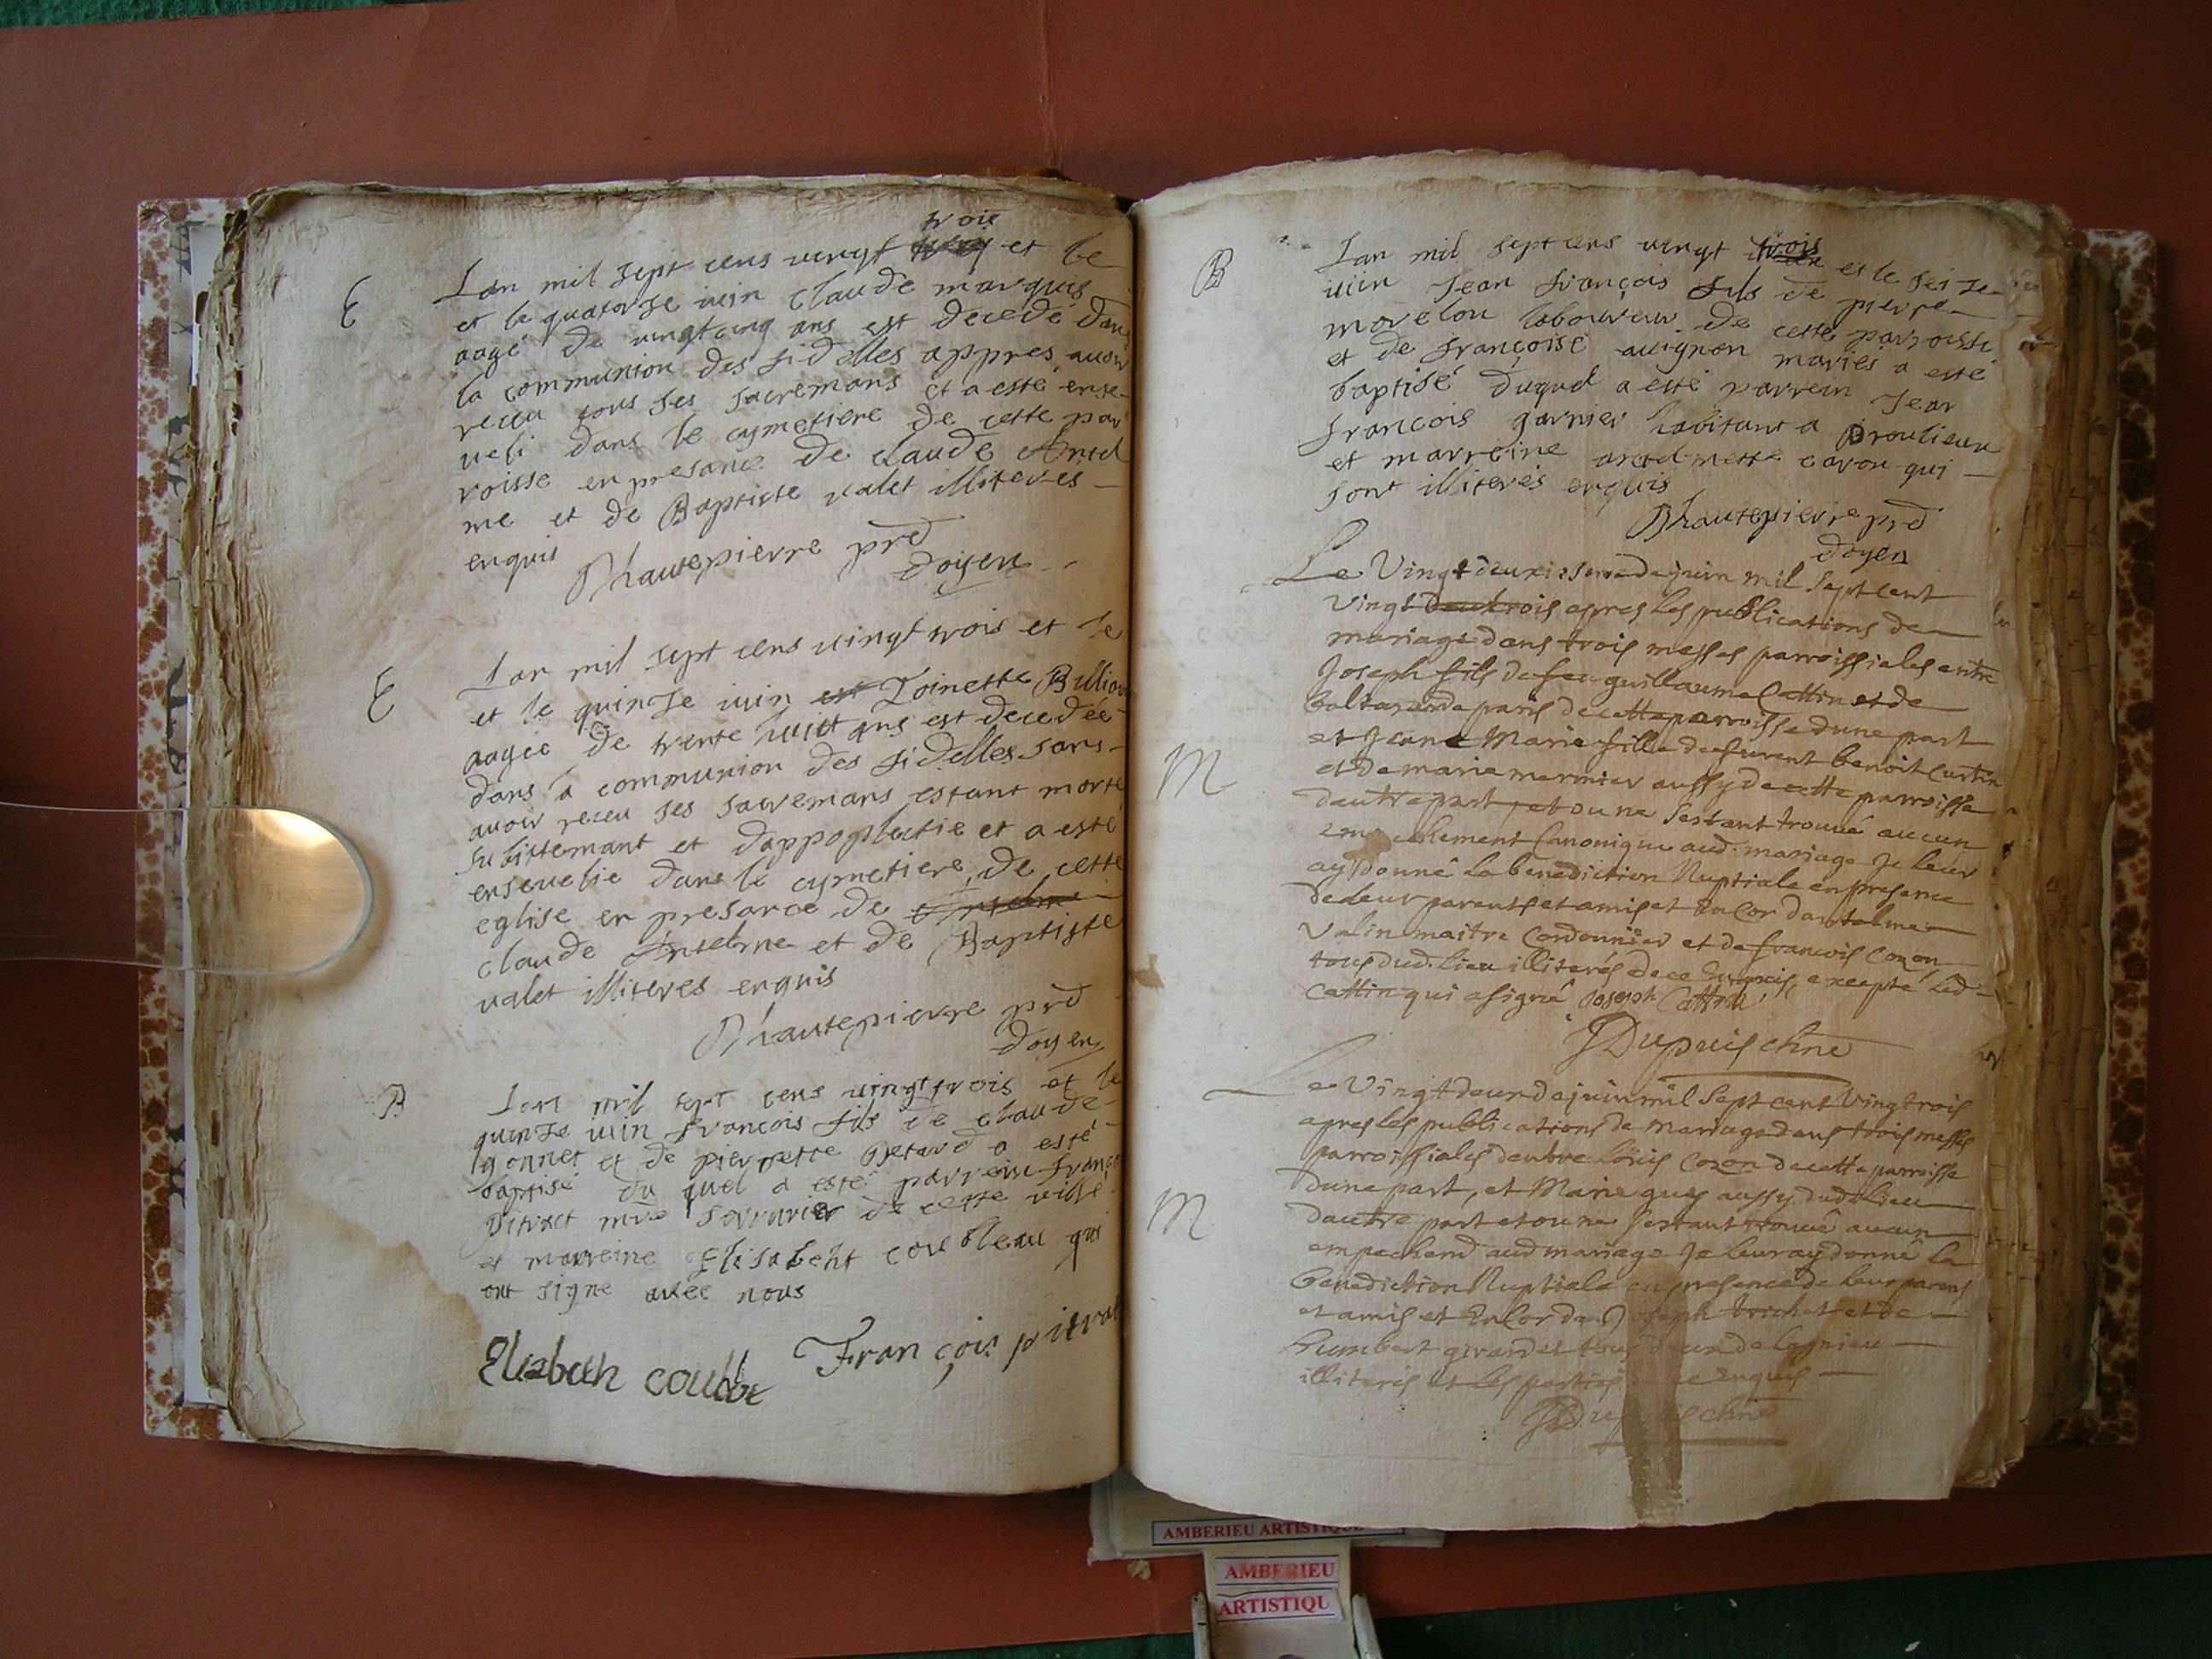 trois
E
Lan mil sept cens vingt et le
et le quatorse iuin Claude marquis
aagé de vingtcinq ans est decedé dans
la communion des fidelles appres auoir
receu tous ses sacremans et a esté ense-
ueli dans le cymetiere de cette par
roisse en presance de claude Antel
me et de Baptiste valet illiterés
enquis
Dhautepierre prd
doyen
E
Lan mil sept cens vingt trois et le
et le quinse iuin est Toinette Bullion
aagée de trente huict ans est decedée
dans la communion des fidelles sans
auoir receu ses sacremans estant morte
subittemant et dappoplectie et a esté
enseuelie dans le cymetiere de cette
eglise en presance de
claude Antelme et de Baptiste
valet illiterés enquis
Dhautepierre prd
doyen
B
Lan mil sept cens vingt trois et le
quinse iuin francois fils de claude
gonnet et de pierrette Betard a esté
baptisé du quel a esté parrein franço
pitrat mre serrurier de cette ville
et marreine Elisabeht coulbleau qui
ont signe avec nous
Elizabeth coulbe François pitrat
B
Lan mil sept cens vingt trois et le seise
iuin Jean françois fils de pierre
morelon laboureur de cette parroisse
et de françoise auignon mariés a esté
baptisé duquel a esté parrein Jean
francois garnier habitant a proulieux
et marreine antelmette caron qui
sont illiterés enquis
Dhautepierre prd
doyen
Le Vingt deuxiesme de juin mil sept cent
vingt trois apres les publications de
mariage dans trois messes parroissiales entre
Joseph fils de feu guillaume Cattin et de
paris de cette parroisse dune part
M
et Jeane Marie fille de furent benoit Curtin
et de marie mermier aussy de cette parroisse
dautre part, et ou ne sestant trouué aucun
empeschement Canonique aud. mariage Je leur
ay donné la benediction Nuptiale en presence
de leur parents et amis et Encor dantelme
Valin maitre Cordonnier et de francois Cozon
tous dud. Lieu illiterés de ce Enquis, excepté led
Cattin qui a signé Joseph Cattin
JDupuis chne
Le Vingt deux de juin mil Sept cent Vingt trois
apres les publications de Mariage dans trois messes
parroissiales dentre loüis Cozon de cette parroisse
M
dune part, et Marie guy aussy dudt lieu
dautre part et ou ne sestant trouué aucun
empechemt aud mariage Je leur ay donné la
benediction Nuptiale en presence de leur parens
et amis et Encor de Joseph trichet et de
humbert girardet tous deux de lagnieu
illiterés et les parties de ce Enquis
JDupuis chne
AMBERIEU ARTISTIQUE
AMBERIEU
ARTISTIQU